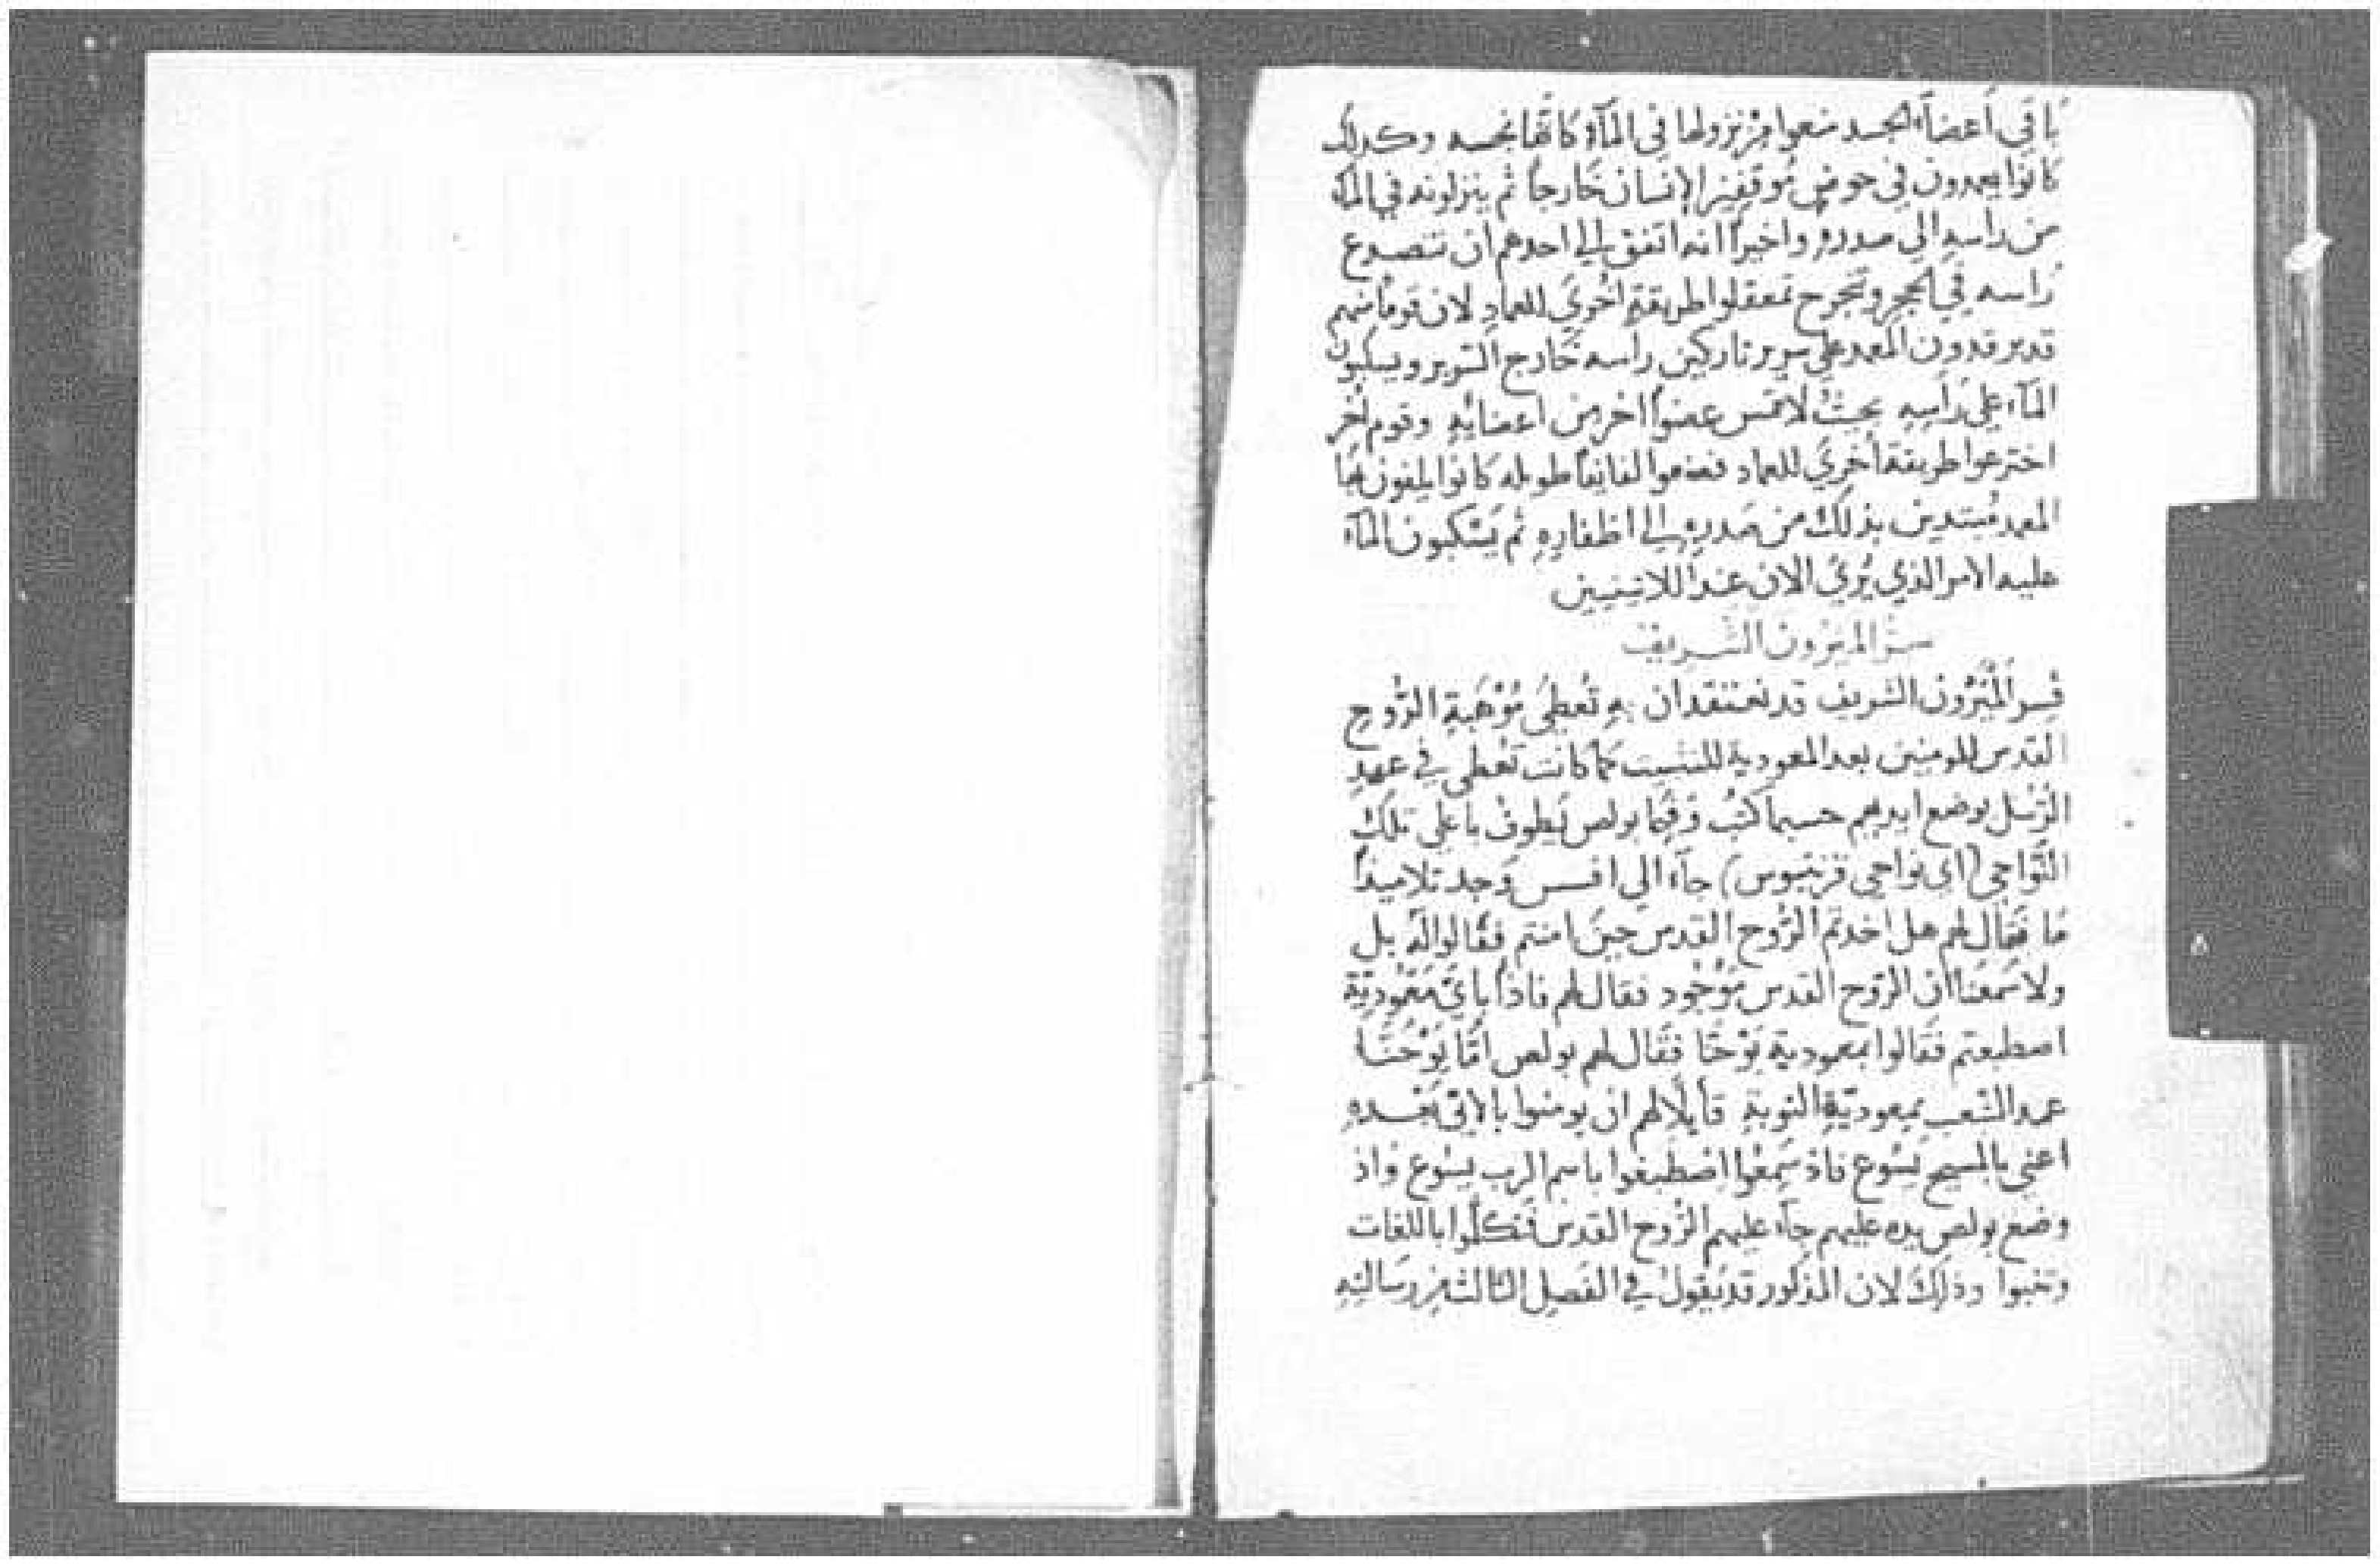 باقي اعضآء الجسد منعوا من نزولها في المآء كانها نجسه وكدلك
كانوا يعمدون في حوض موقفين الانسان خارجاً ثم ينزلونه في المآء
من راسه الي صدره واخيراً انه اتفق الي احدهم ان تصدع
راسه في الحجر وتجرح تمعقلوا طريقةٍ اخري للعماد لان قوماً منهم
قد يرقدون المعمد علي سرير تاركين راسه خارج السرير ويسكبون
المآء علي راسه بحيث لا تمس عضواً اخر من اعضايه وقوم اخر
اخترعوا طريقة أخري للعماد فصنعوا لفايفاً طويله كانوا يلفون بها
المعمد مبتدين بذلك من صدره الي اظفاره ثم يسكبون المآء
عليه الامر الذي يُري الان عند اللاتينيين
سر الميرون الشريف
فسر الميرون الشريف قد نعتقد ان به تُعطي موهبة الرُوح
القدس للمومنين بعد المعمودية للتثبيت كما كانت تعطي في عهد
الرسل بوضع ايديهم حسبما كتب وفيما بولص يطوف باعلي تلك
النواحي (اي نواحي قرنتيوس) جآء الي افسس وجد تلاميذاً
ما فقال لهم هل اخدتم الروح القدس حين امنتم فقالوا له بل
ولا سمعنا ان الروح القدس موجود فقال لهم فاذاً باي معمودية
اصطبغتم فقالوا بمعمودية يوحنا فقال لهم بولص امّا يوحنا
عمد الشعب بمعموديّة التوبة قايلاً لهم ان يومنوا بالاتي بعده
اعني بالمسيح يسوع فاذ سمعوا اصطبغوا باسم الرب يسوع واذ
وضع بولص يده عليهم جآء عليهم الروح القدس فتكلموا باللغات
وتنبوا وذلك لان المذكور قد يقول في الفصل الثالث من رسالته